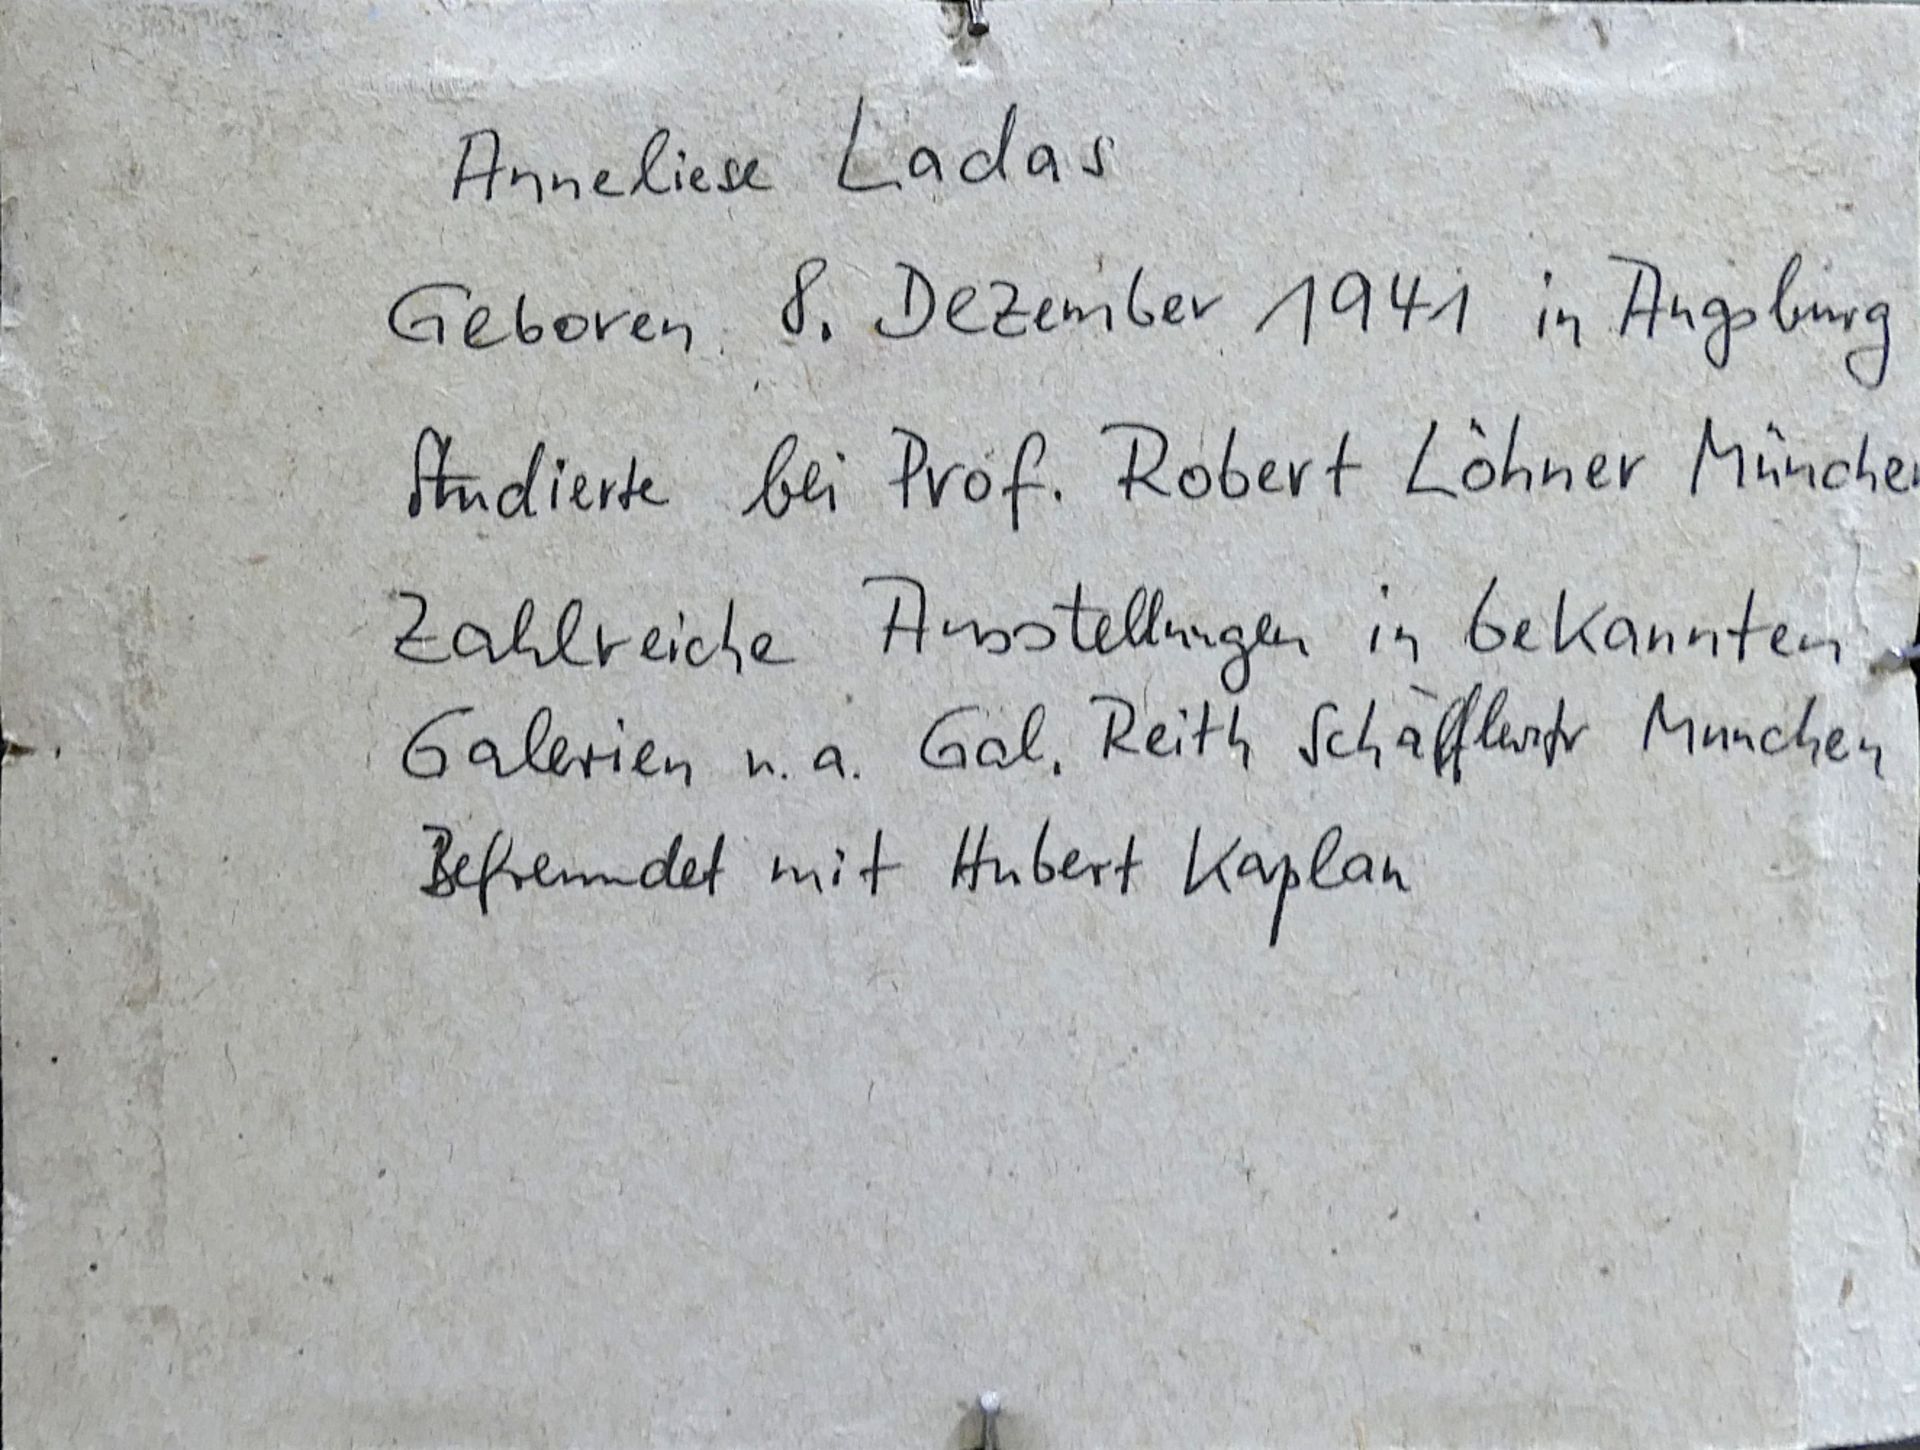 Anneliese Ladas
Geboren 8. Dezember 1941 in Augsburg
Studierte bei Prof. Robert Löhner München
Zahlreiche Ausstellungen in bekannten
Galerien u. a. Gal. Reith Schäfflerstr München
Befreundet mit Hubert Kaplan